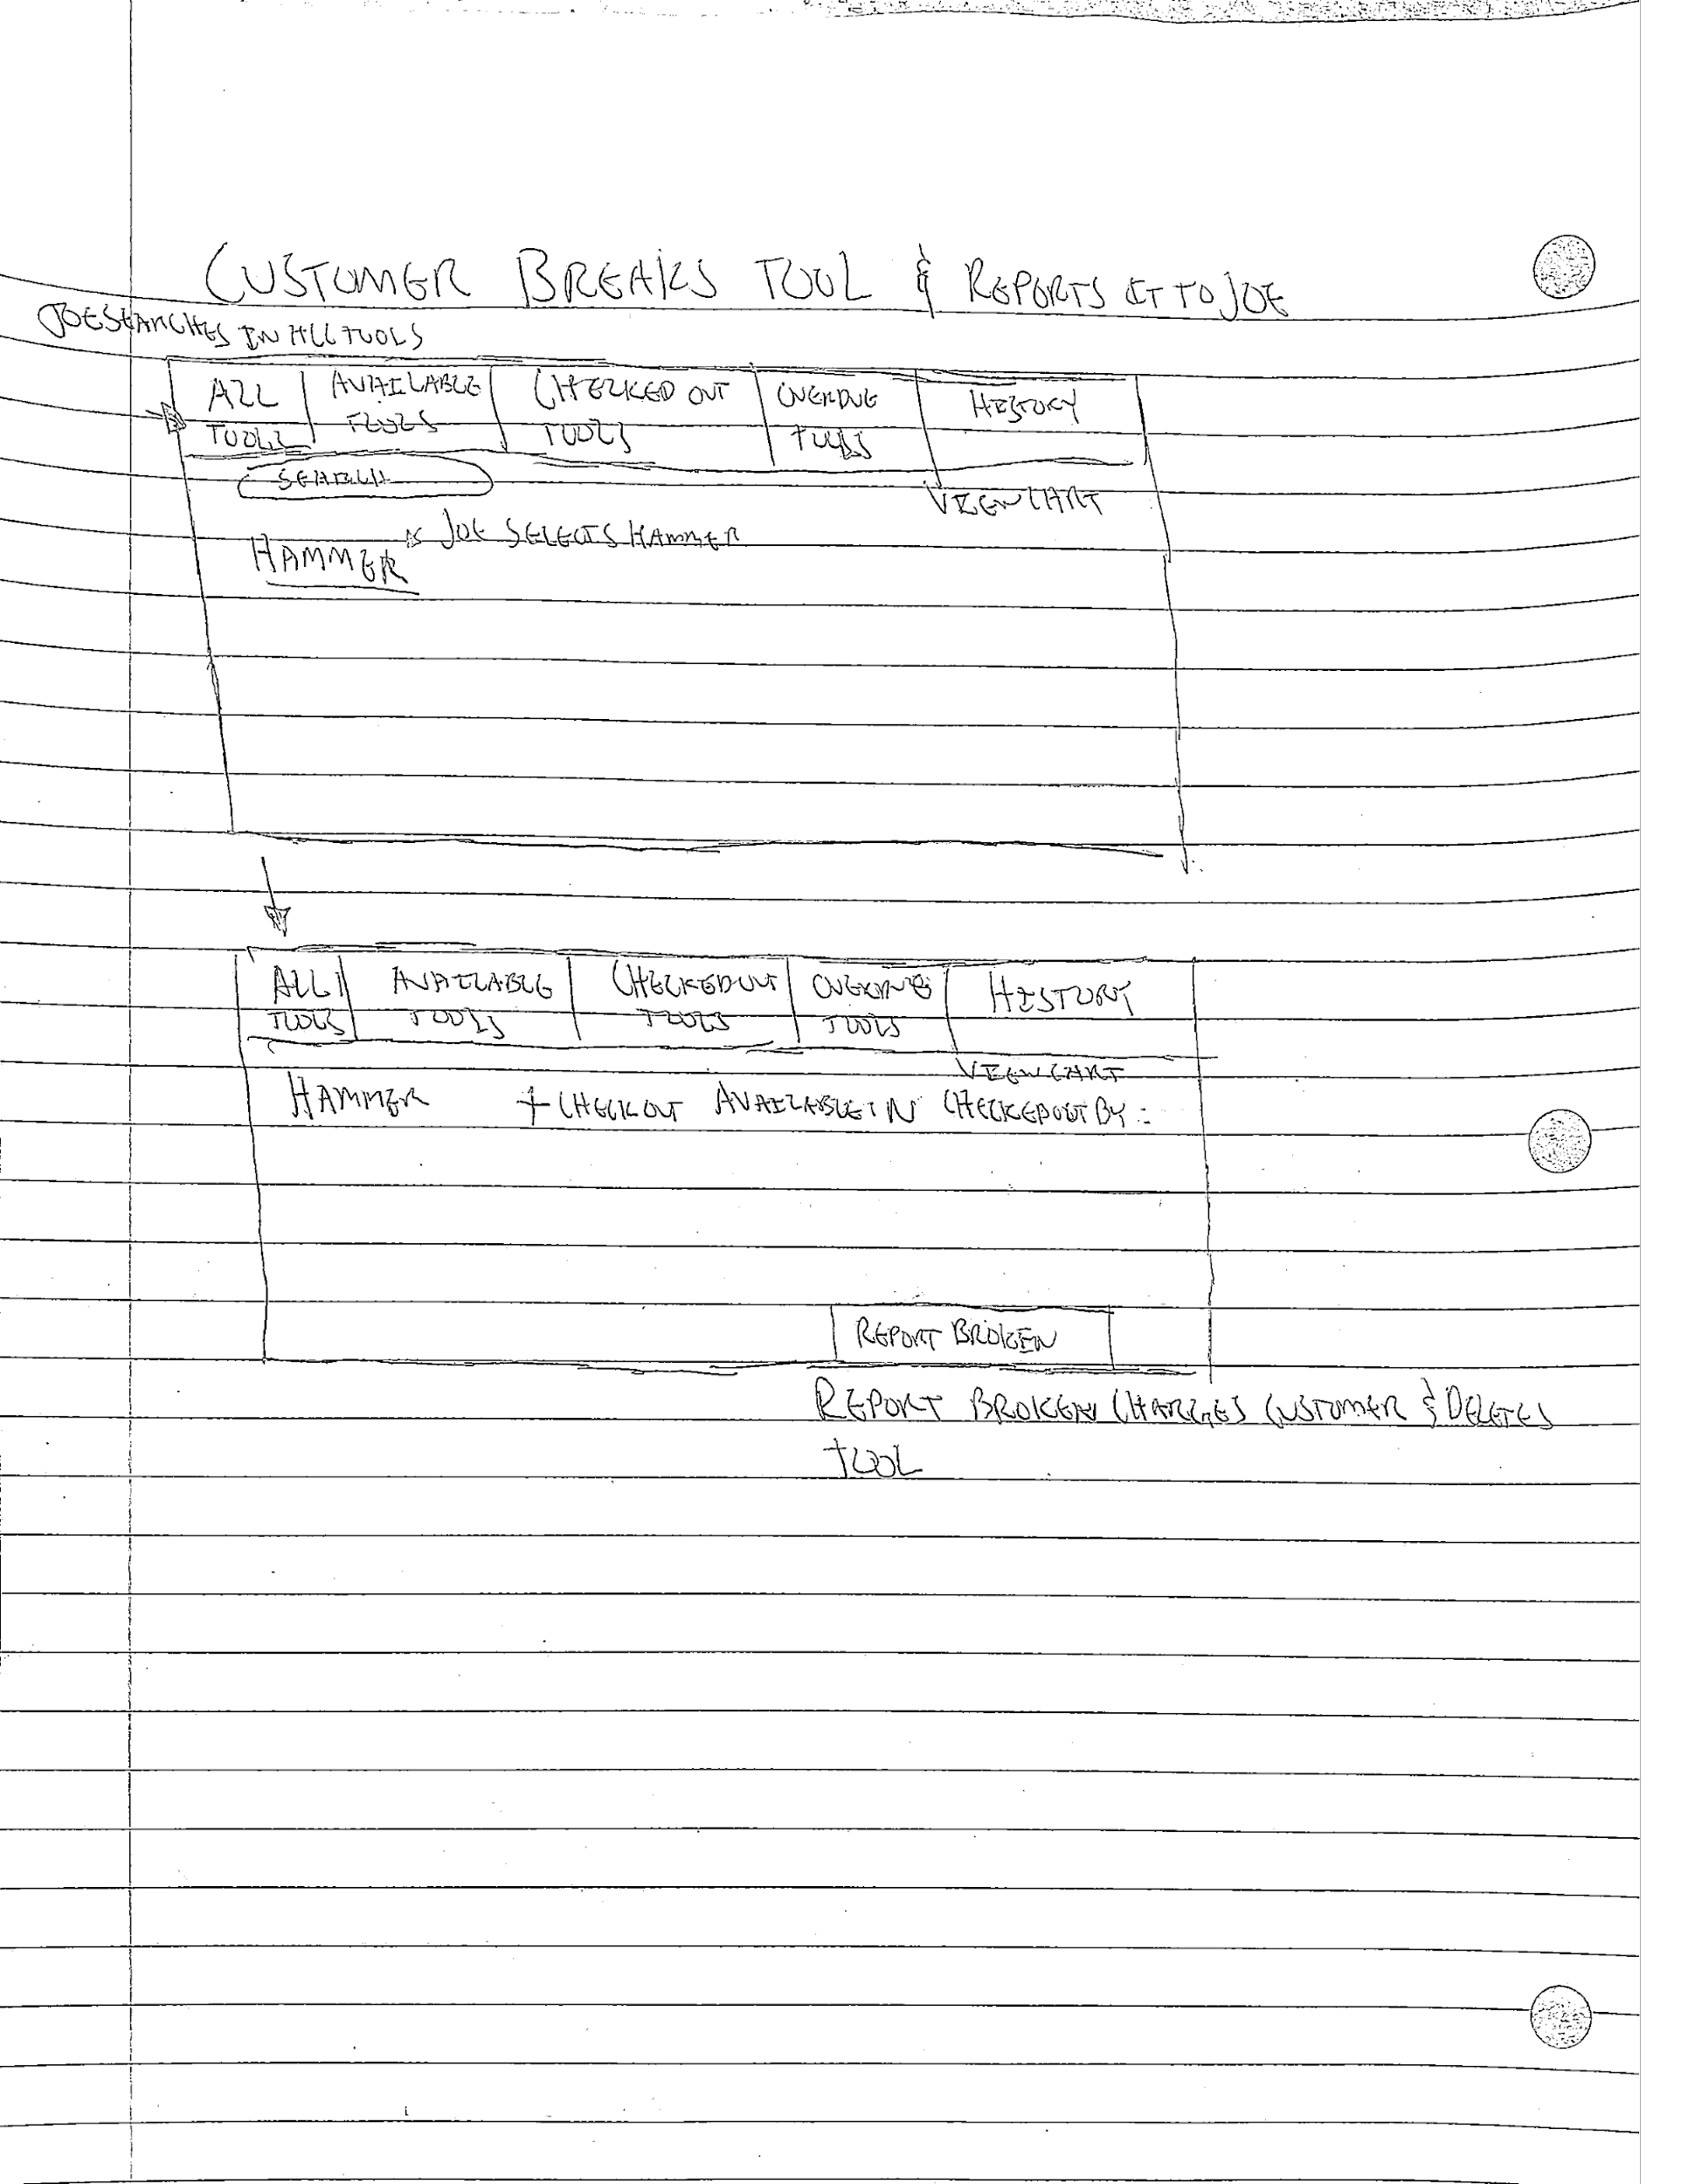 CUSTOMER BREAKS TOOL & REPORTS IT TO JOE
JOE SEARCHES IN ALL TOOLS
ALL TOOLS
AVAILABLE TOOLS
CHECKED OUT TOOLS
OVERDUE TOOLS
HISTORY
SEARCH
VIEW CHART
JOE SELECTS HAMMER
HAMMER
ALL TOOLS
AVAILABLE TOOLS
CHECKED OUT TOOLS
OVERDUE TOOLS
HISTORY
VIEW CHART
HAMMER + CHECKOUT AVAILABLE IN CHECKED OUT BY:
REPORT BROKEN
REPORT BROKEN CHARGES CUSTOMER & DELETES
TOOL